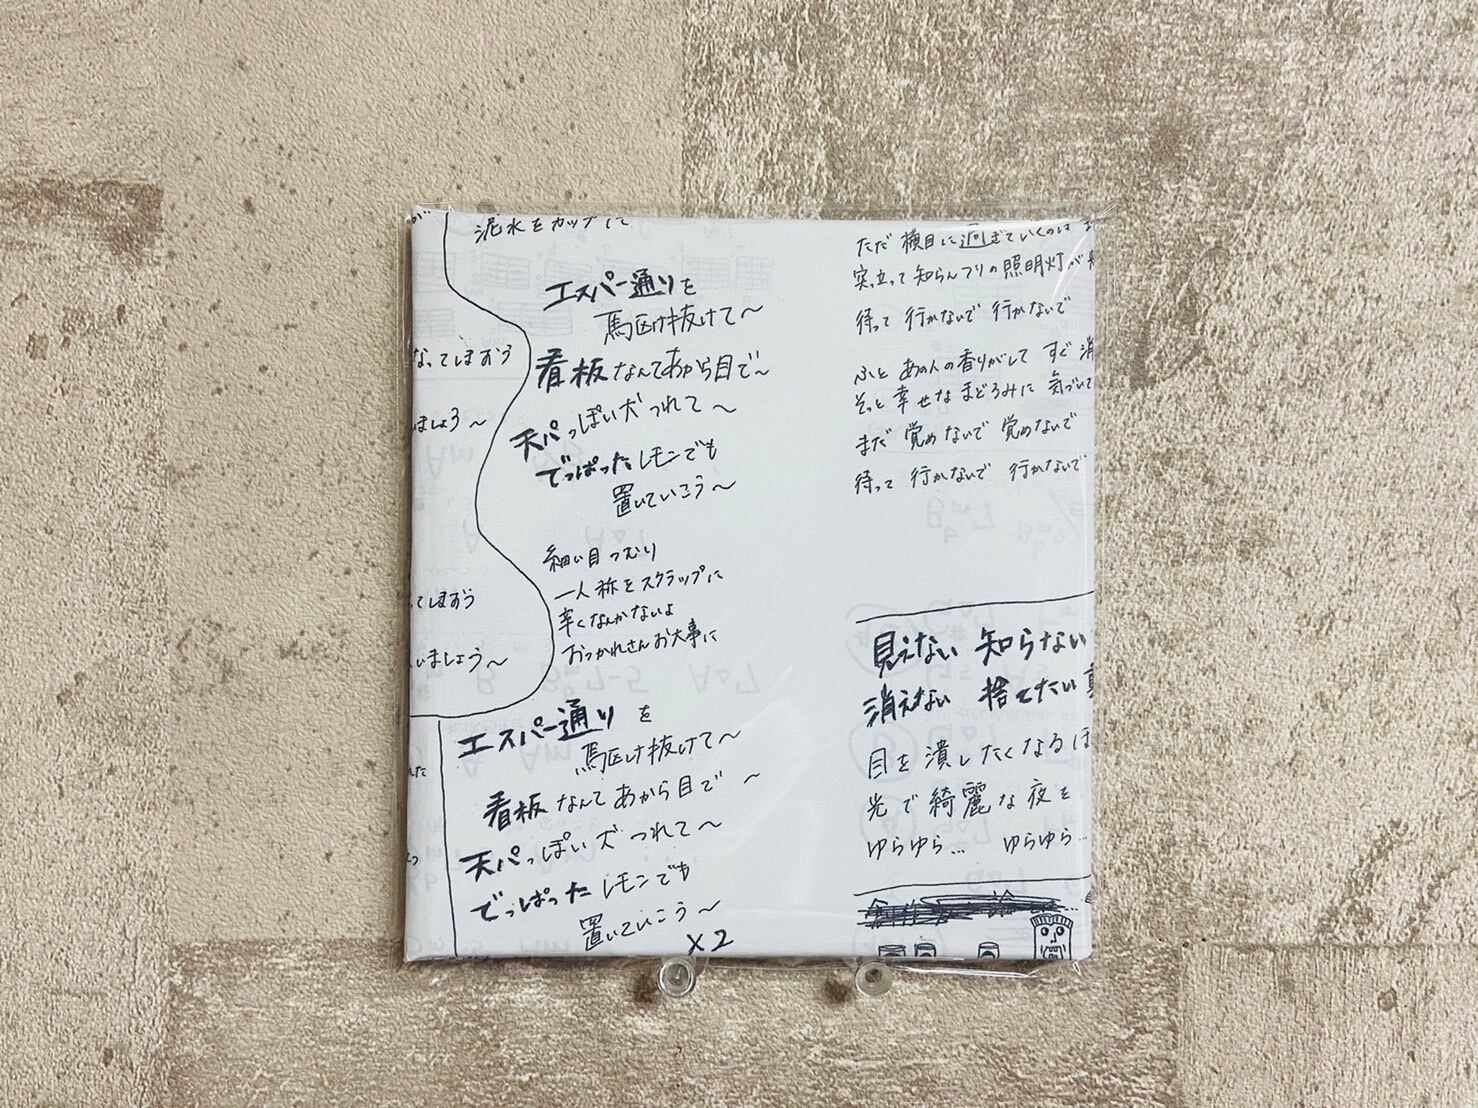 泥水をカップにて
エスパー通りを
馬駆け抜けて～
看板なんてあから目で～
天パっぽい犬つれて～
でっぱったレモンでも
置いていこう～
細い目つむり
一人称をスクラップに
辛くなんかないよ
おつかれさんお大事に
エスパー通りを
駆け抜けて～
看板なんてあから目で～
天パっぽい犬つれて～
でっぱったレモンでも
置いていこう～
×2
なってしまおう
ましょう～
てしまおう
いましょう～
ただ 横目に過ぎていくのは
突っ立って知らんフリの照明灯が
待って 行かないで 行かないで
ふと あの人の香りがして すぐ 消
そっと幸せな まどろみに 気づいて
まだ 覚めないで 覚めないで
待って 行かないで 行かないで
見えない 知らない
消えない 捨てたい
目を潰したくなるほ
光で綺麗な夜を
ゆらゆら… ゆらゆら…